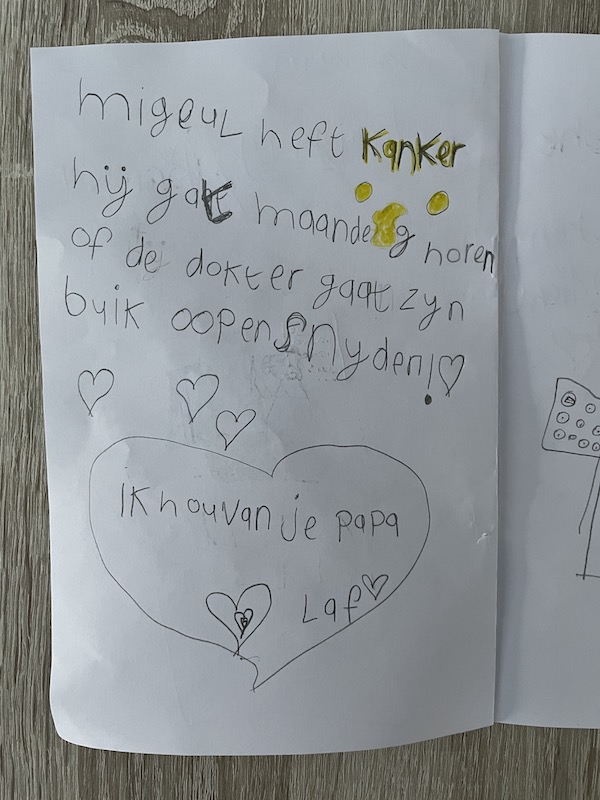 migeul heft kanker
hij gat maandeg horen
of de dokter gaat zyn
buik oopen snyden!♡
ik hou van je papa
Laf♡